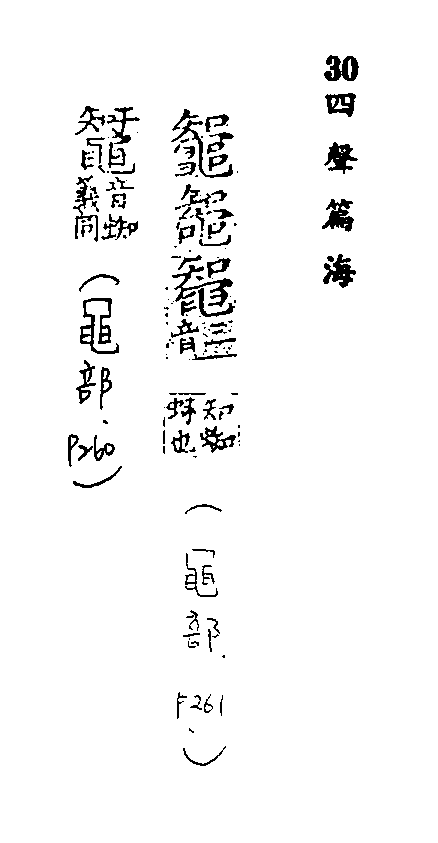 30四聲篇海
三音
知蜘
蛛也
(黽部.P261.)
音蜘
義同
(黽部.P260)